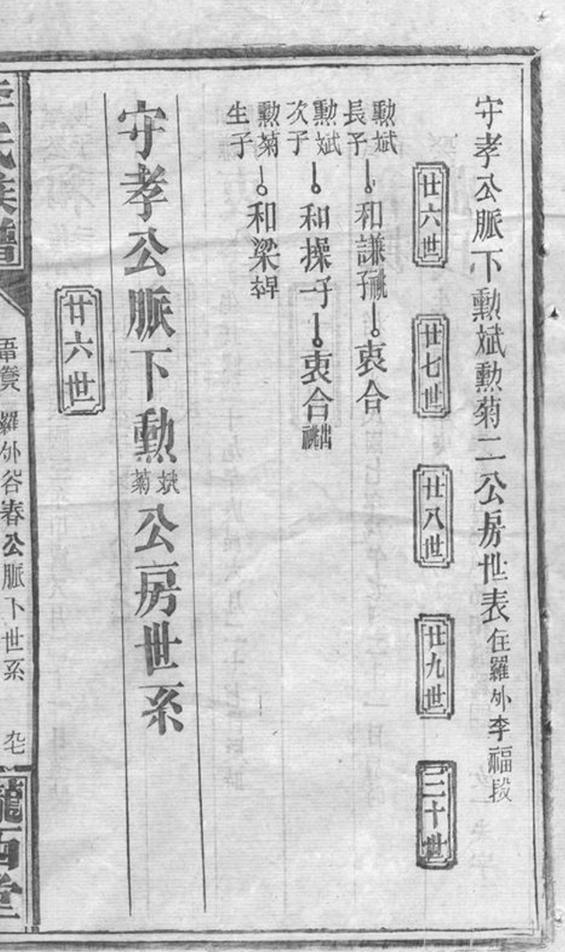 守孝公脈下勲斌勲菊二公房世表住羅外李福段
廿六世
廿七世
廿八世
廿九世
三十世
勲斌長子
和謙子祧
衷合
勲斌次子
和操一子
衷合出祧
勲菊生子
和梁
守孝公脈下勲斌菊公房世系
廿六世
李氏族譜
羅外谷春公脈下世系
隴西堂